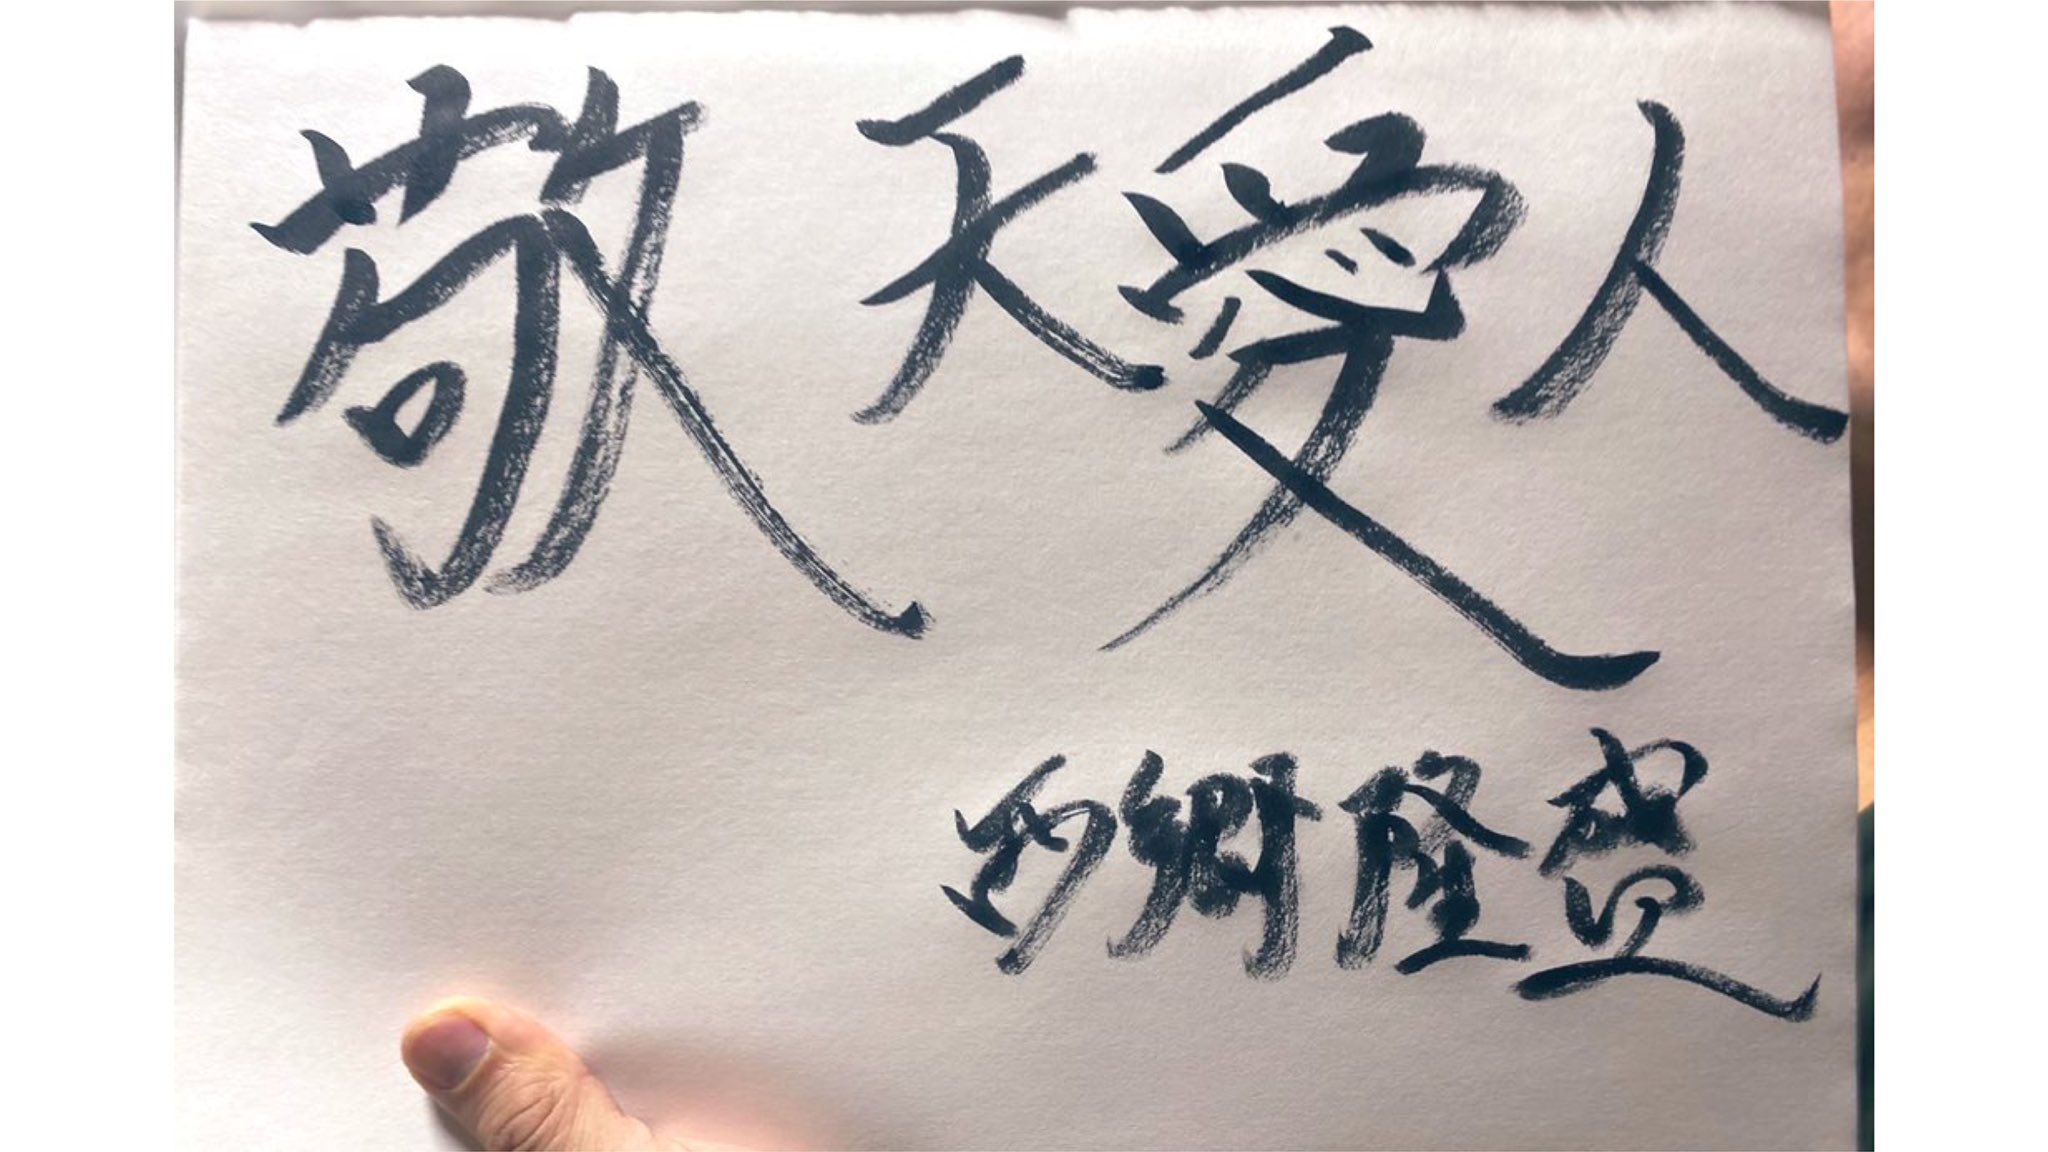 敬天愛人
西郷隆盛